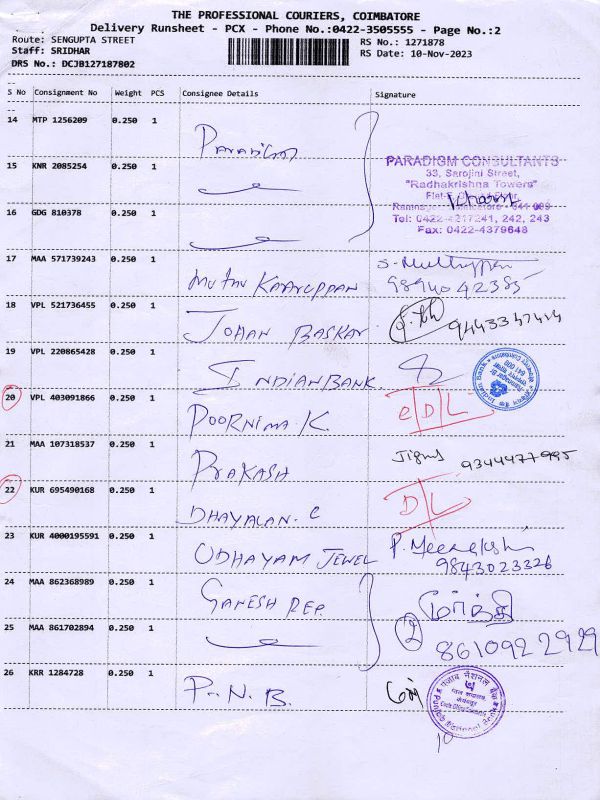 THE PROFESSIONAL COURIERS, COIMBATORE
Delivery Runsheet - PCX - Phone No.:0422-3505555 - Page No.:2
Route: SENGUPTA STREET
RS No.: 1271878
Staff: SRIDHAR
RS Date: 10-Nov-2023
DRS No.: DCJB127187802
S No Consignment No Weight PCS Consignee Details Signature
14 MTP 1256209 0.250 1 Paradigm
15 KNR 2085254 0.250 1
PARADIGM CONSULTANTS
33, Sarojini Street,
"Radhakrishna Towers"
16 GDG 810378 0.250 1
Tel: 0422-4217241, 242, 243
Fax: 0422-4379648
17 MAA 571739243 0.250 1 MUTHU KARUPPAN S. Muthuppan
9894042385
18 VPL 521736455 0.250 1 JOHAN BASKAR 9443347414
19 VPL 220865428 0.250 1 INDIANBANK. Indian Bank
20 VPL 403091866 0.250 1 POORNIMA K. e D L
21 MAA 107318537 0.250 1 PRAKASH 9344477995
22 KUR 695490168 0.250 1 DHAYALAN. C D L
23 KUR 4000195591 0.250 1 UDHAYAM JEWEL P. Meenakshi
9843023326
24 MAA 862368989 0.250 1 GANESH REP.
25 MAA 861702894 0.250 1 2 8610922929
26 KRR 1284728 0.250 1 P. N. B.
पंजाब नैशनल बैंक
Punjab National Bank
10